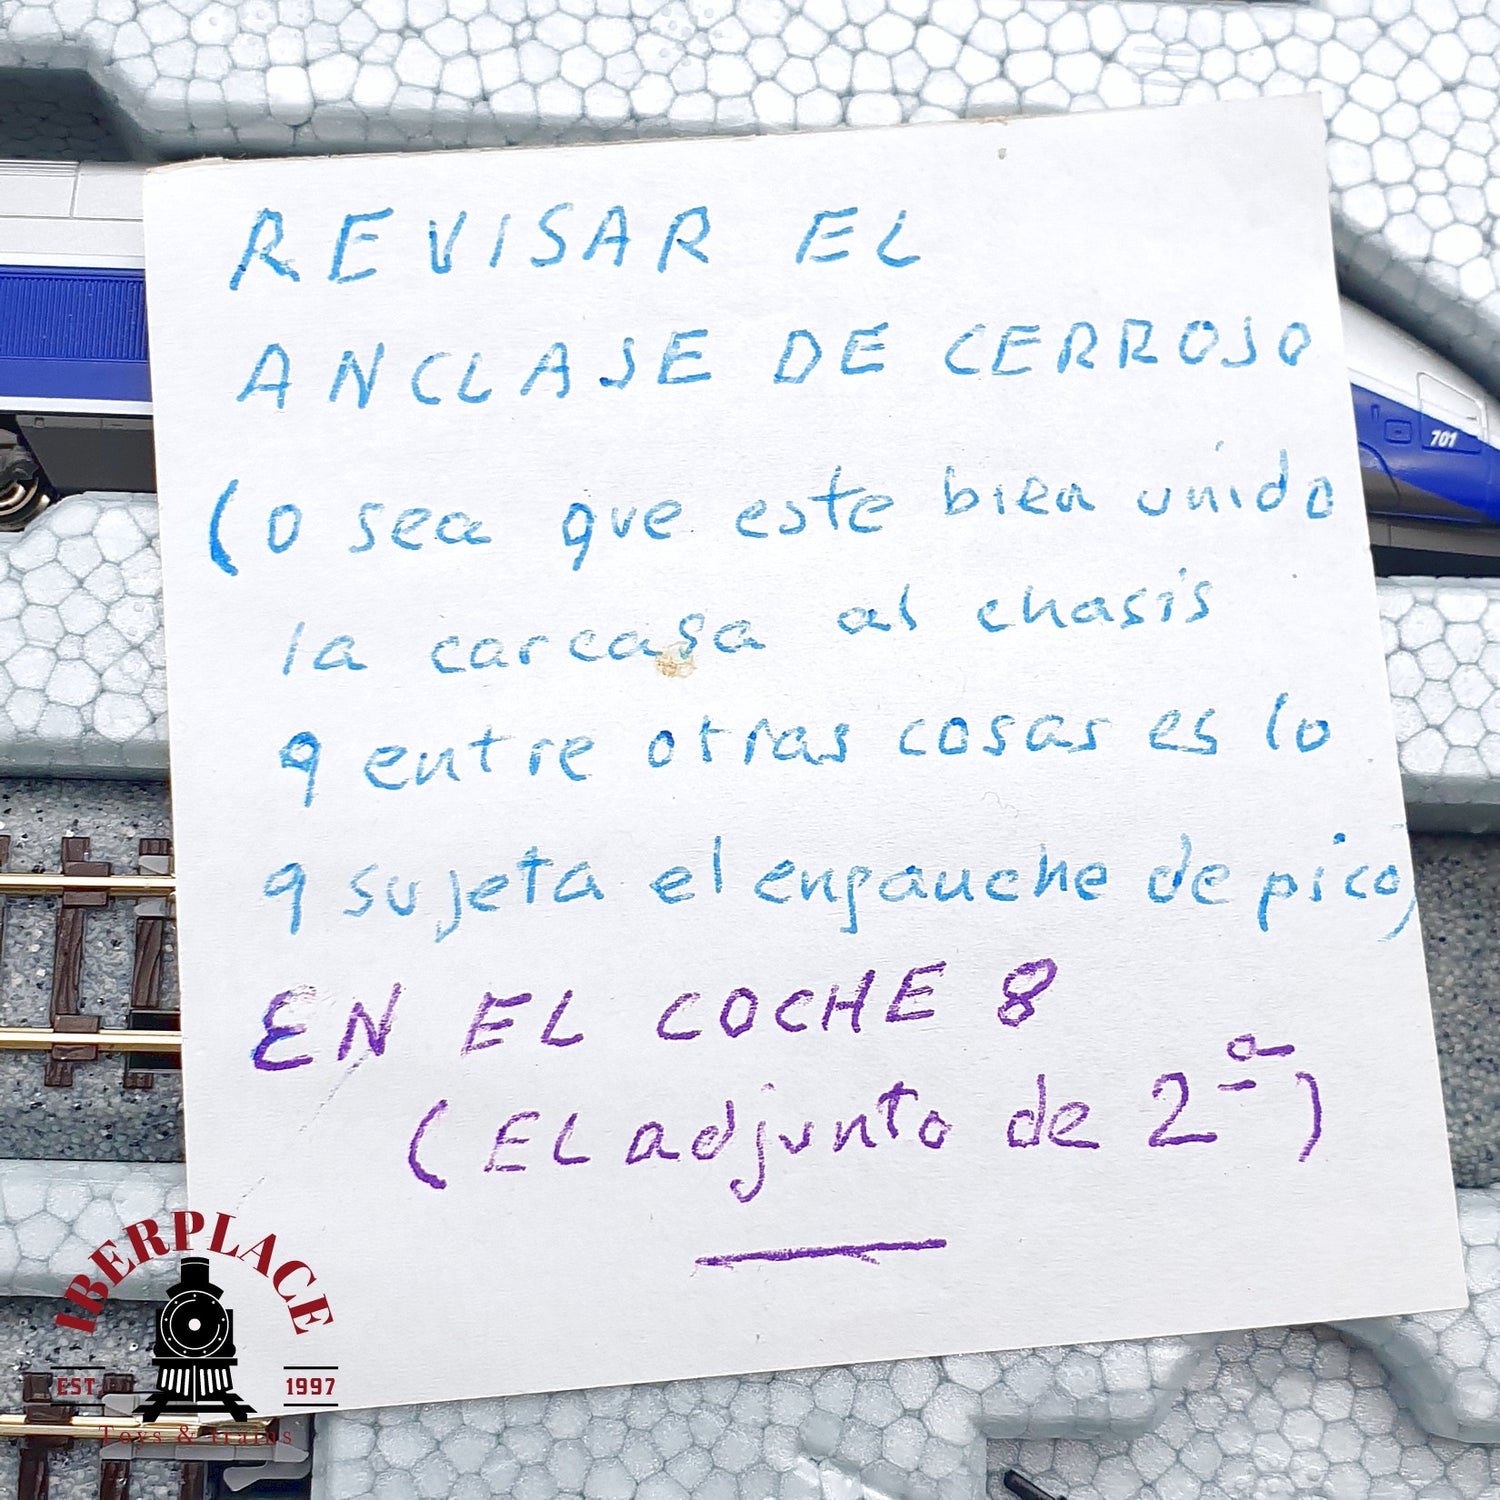 REVISAR EL
ANCLAJE DE CERROJO
(o sea que este bien unido
la carcasa al chasis
q entre otras cosas es lo
q sujeta el enganche de pico)
EN EL COCHE 8
(EL adjunto de 2ª)
701
IBERPLACE
EST. 1997
Toys & trains